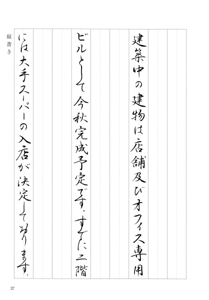 建築中の建物は店舗及びオフィス専用
ビルとして今秋完成予定です。すでに二階
には大手スーパーの入店が決定しております。
縦書き